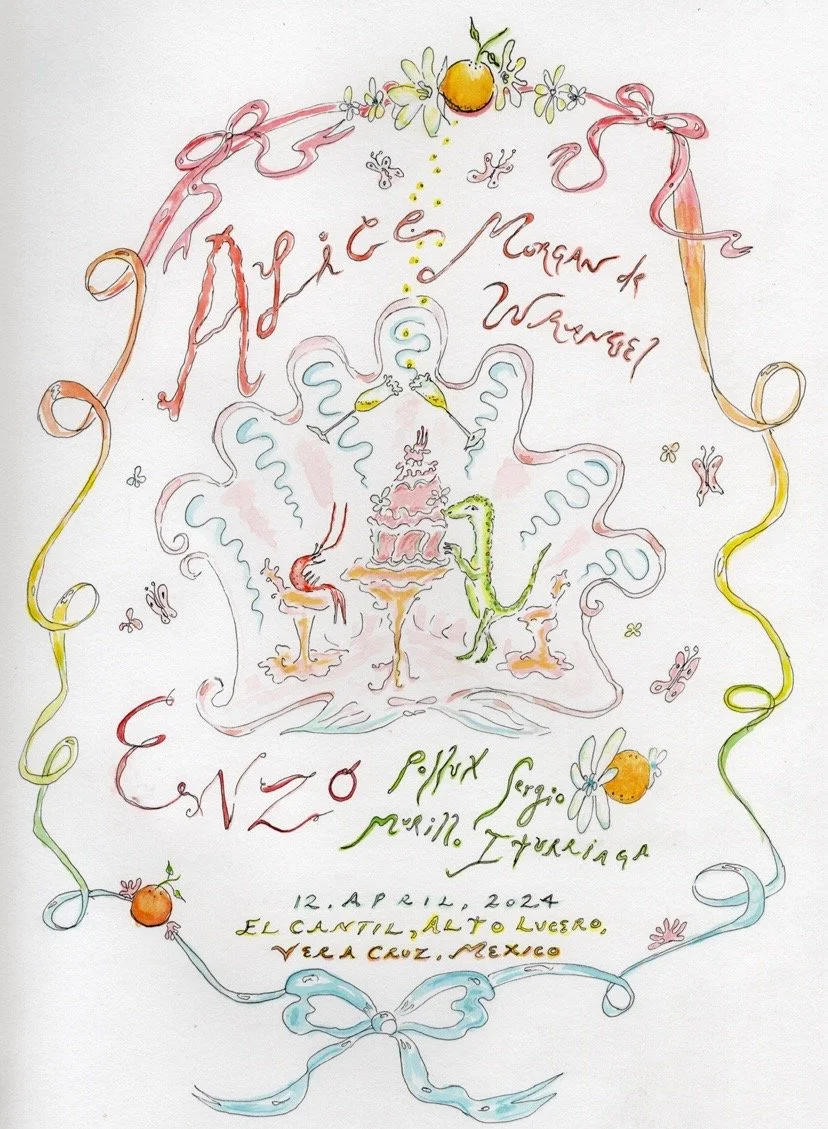 Alice Morgan de
Wrangel
Enzo Pollux Sergio
Murillo Iturriaga
12. APRIL, 2024
EL CANTIL, ALTO LUCERO,
VERA CRUZ, MEXICO